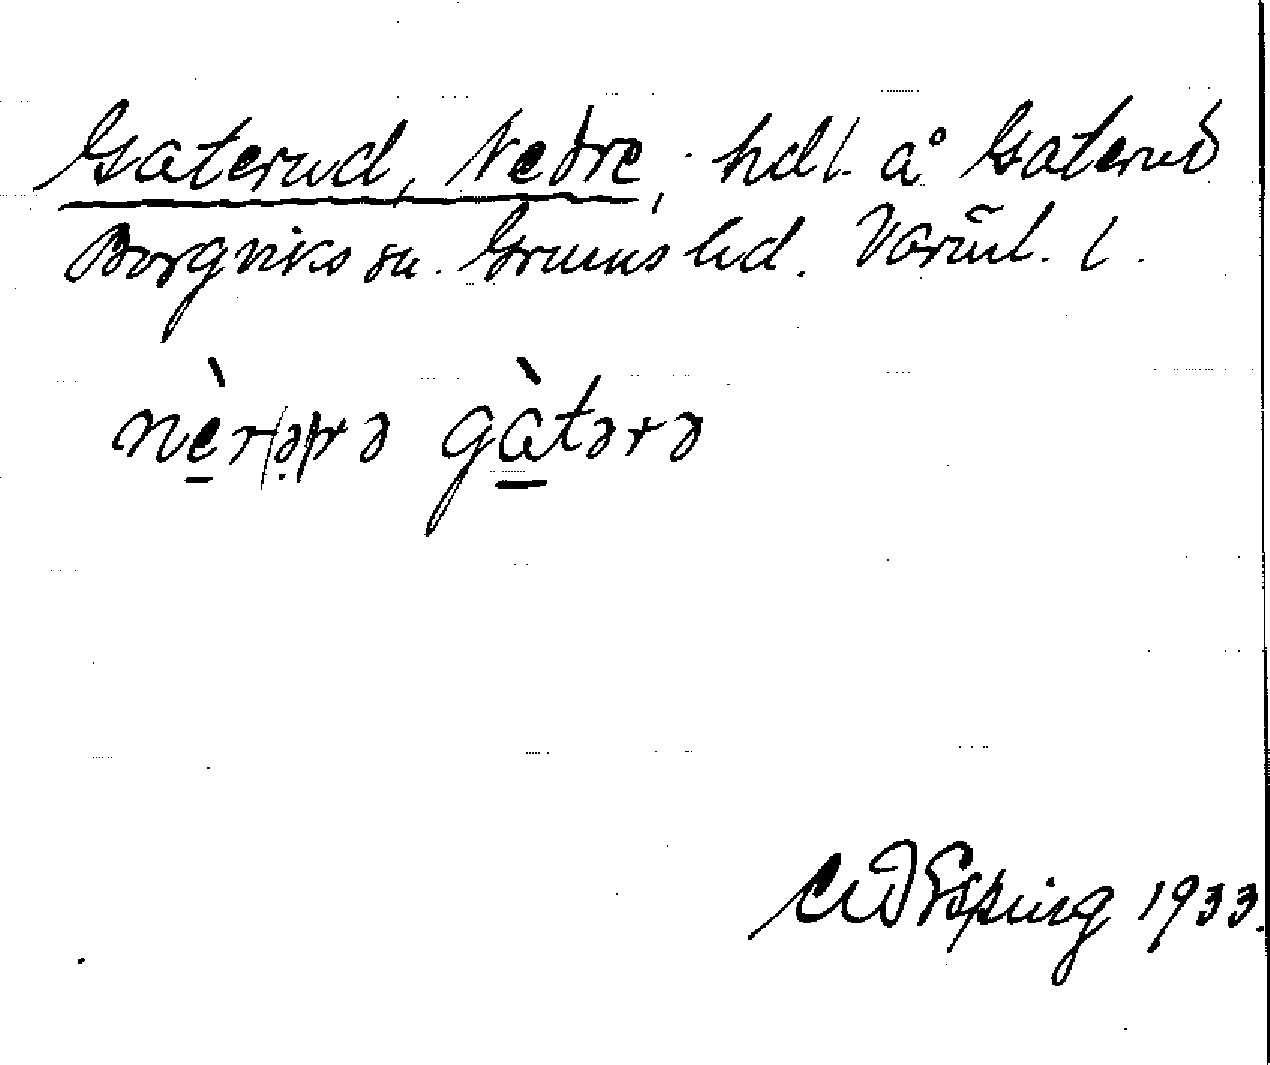 Gaterud, Nedre, hdl. å Gaterud
Borgviks sn. Grums hd. Värml. l.
nèr(ə)rə gàtərə
Espling 1933.